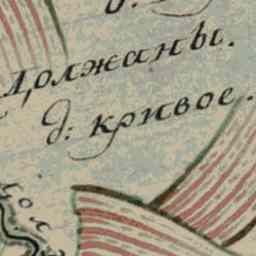 Должаны.
д: кривое.